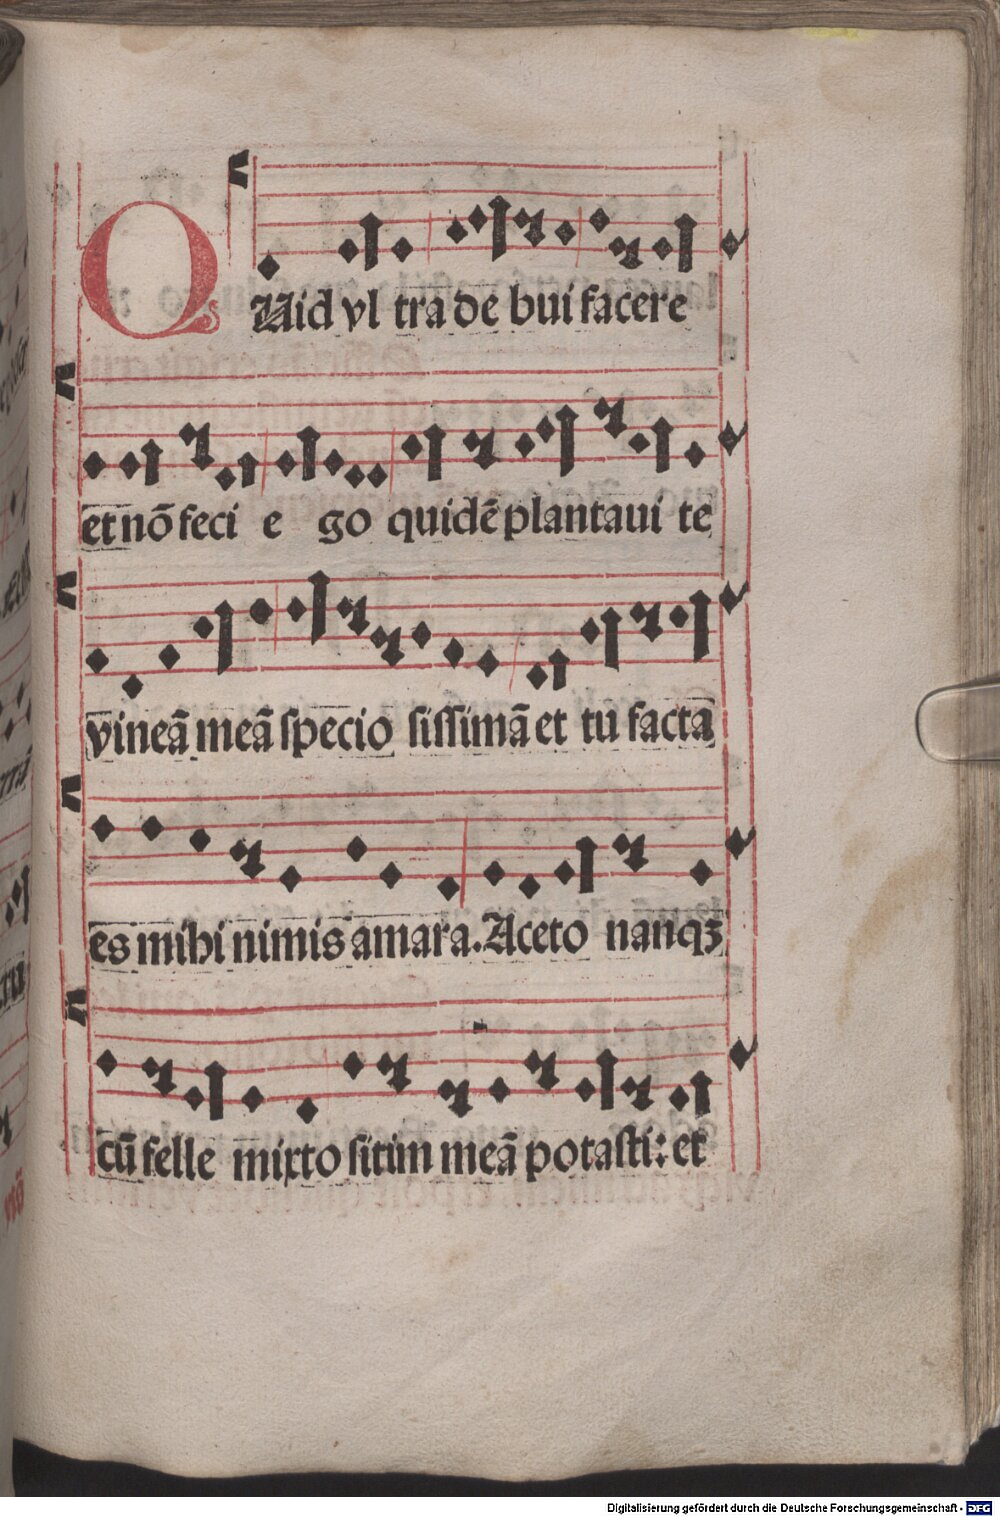 QUid vl tra de bui facere
et nō feci e go quidē plantaui te
vineā meā specio sissimā et tu facta
es mihi nimis amara. Aceto nanqꝫ
cū felle mixto sitim meā potasti: et
Digitalisierung gefördert durch die Deutsche Forschungsgemeinschaft - DFG